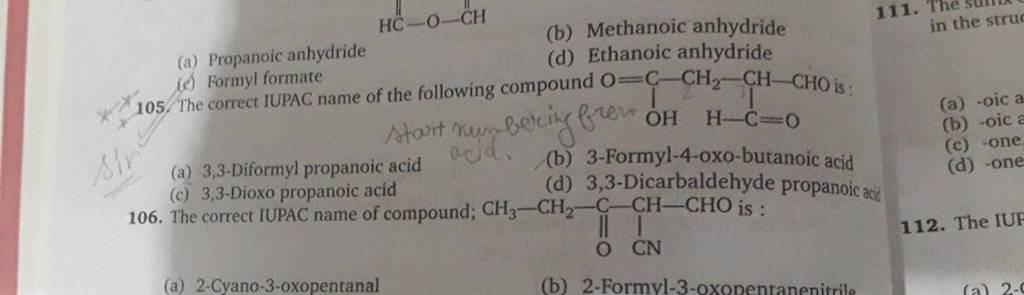 HC—O—CH
(a) Propanoic anhydride (b) Methanoic anhydride
(c) Formyl formate (d) Ethanoic anhydride
105. The correct IUPAC name of the following compound O=C—CH₂—CH—CHO is :
OH H—C=O
Start numbering from
acid.
Sir
(a) 3,3-Diformyl propanoic acid (b) 3-Formyl-4-oxo-butanoic acid
(c) 3,3-Dioxo propanoic acid (d) 3,3-Dicarbaldehyde propanoic acid
106. The correct IUPAC name of compound; CH₃—CH₂—C—CH—CHO is :
O CN
(a) 2-Cyano-3-oxopentanal (b) 2-Formyl-3-oxopentanenitrile
111. The
in the
(a) -oic
(b) -oic
(c) -one
(d) -one
112. The
(a) 2-